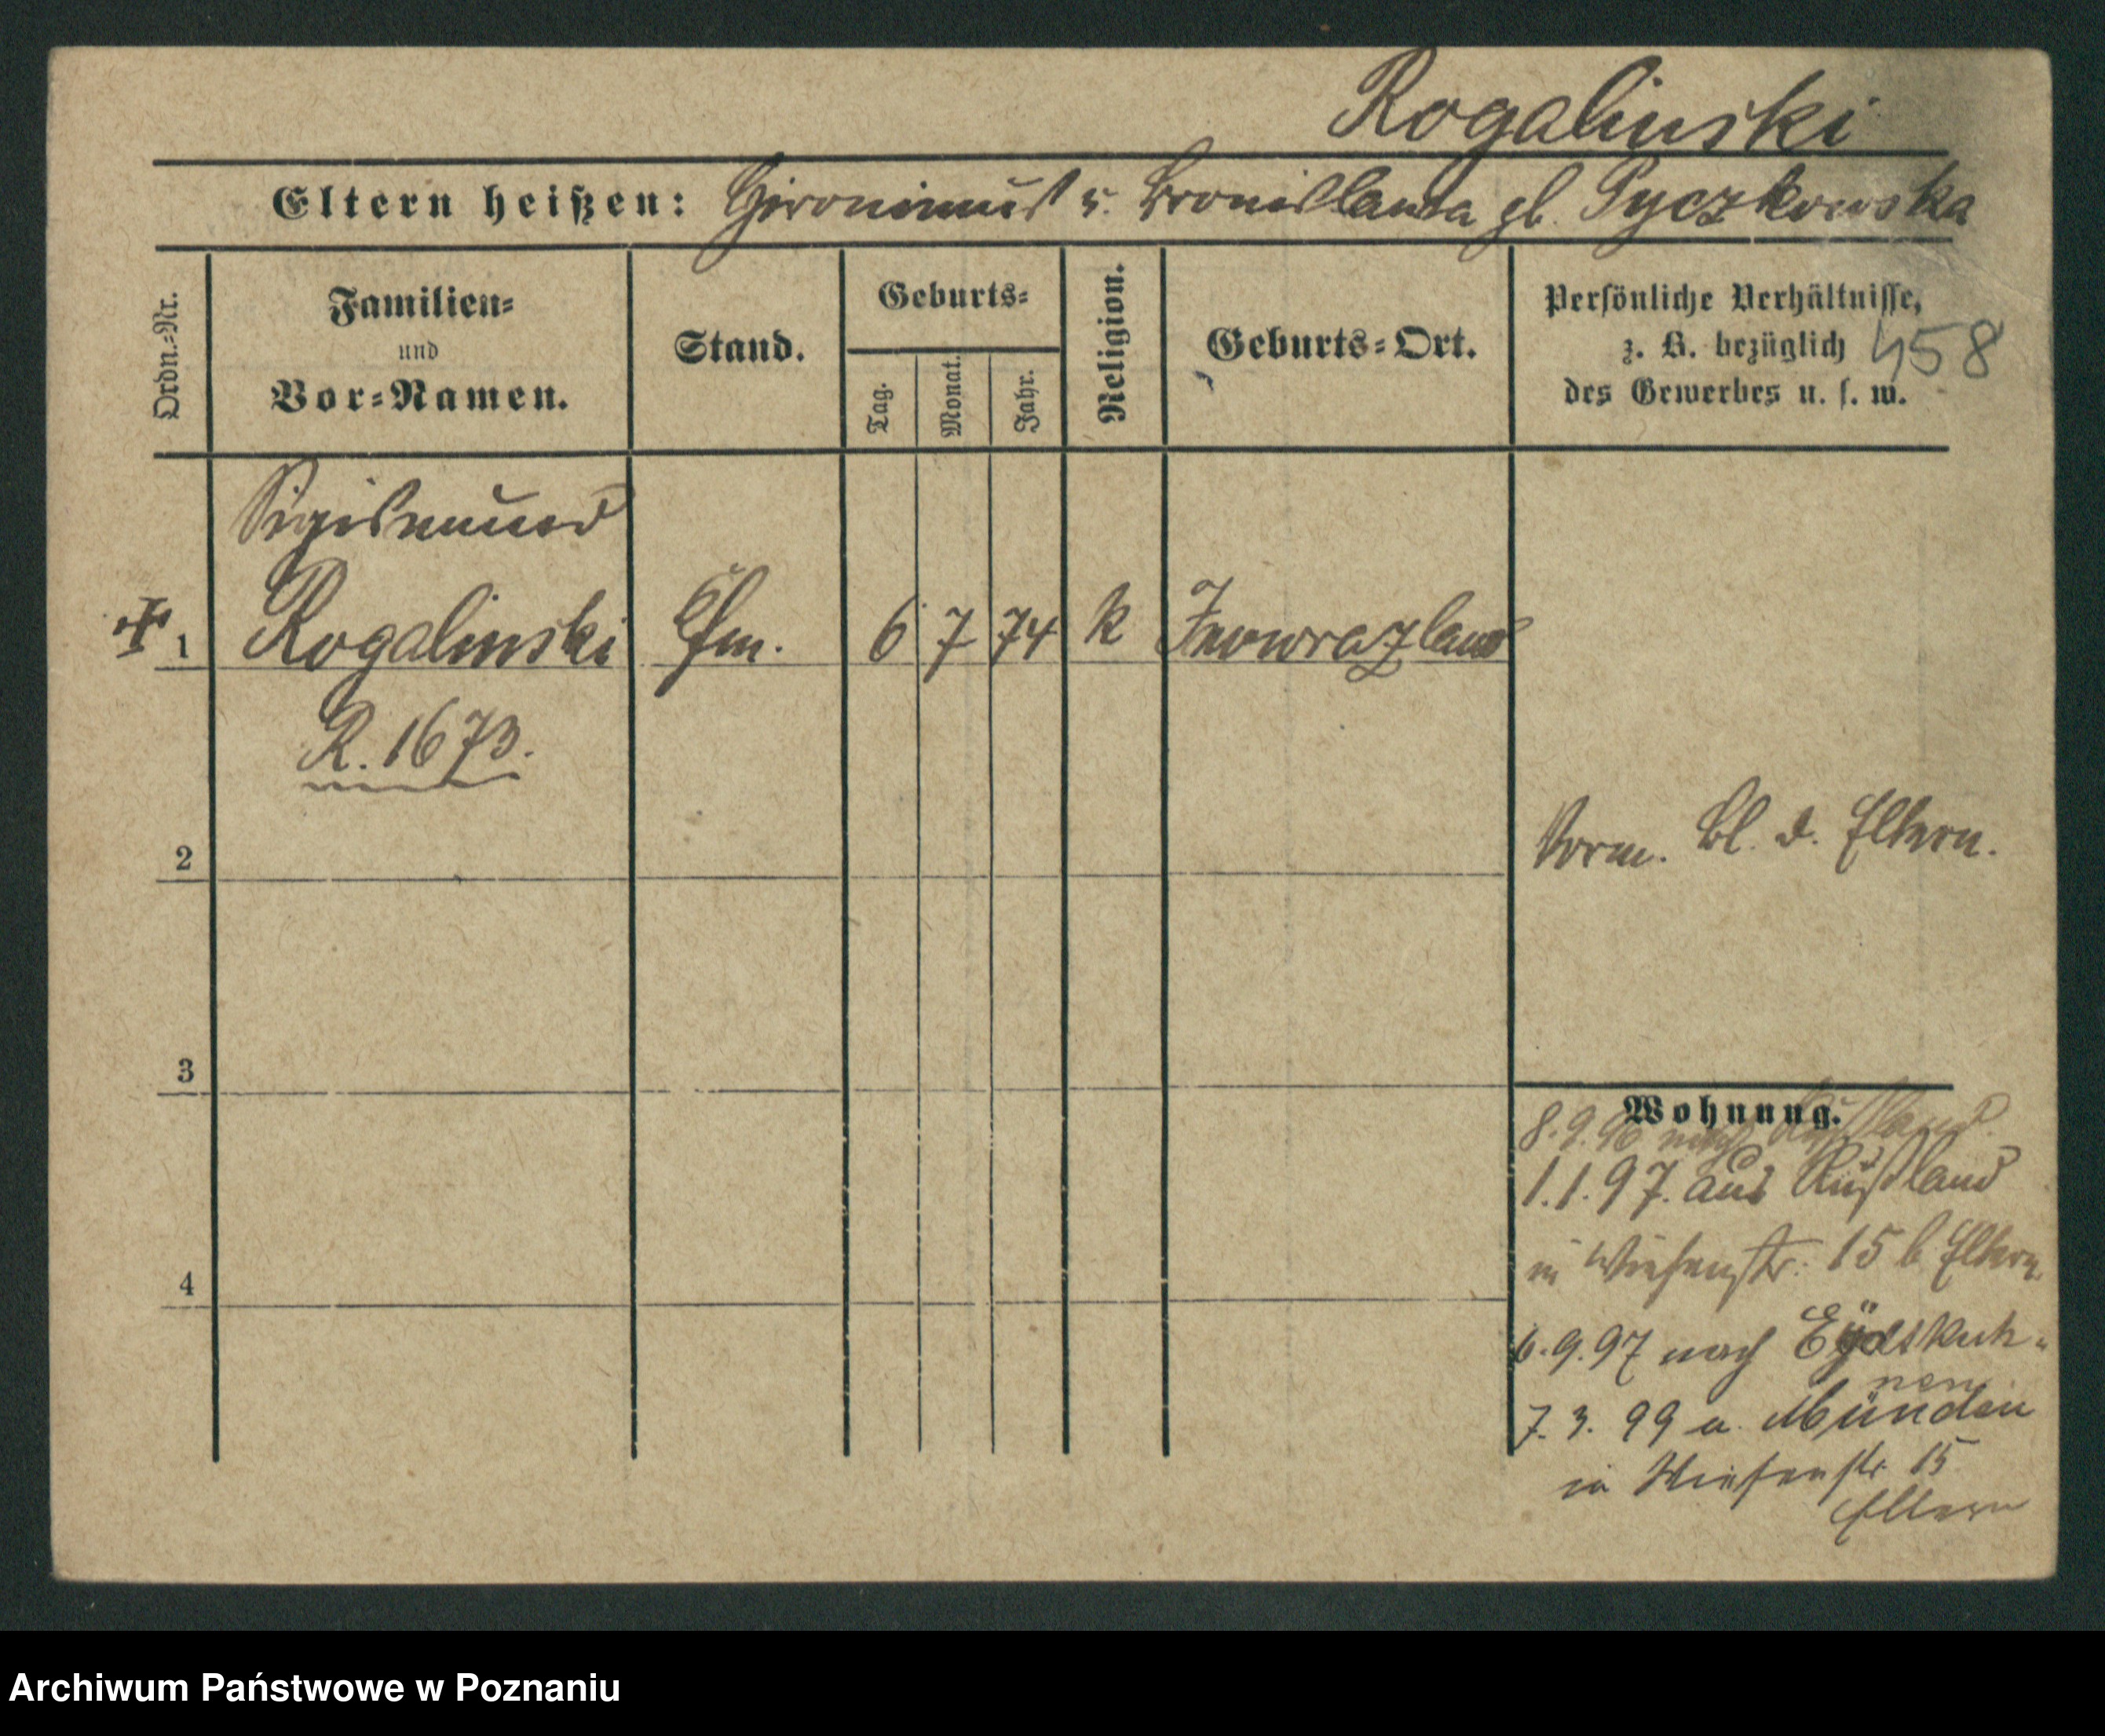 Rogalinski
Eltern heißen: Hironimus u. Bronislawa gb. Pyczkowska
Ordn.-Nr.
Familien-
und
Vor-Namen.
Stand.
Geburts-
Tag.
Monat.
Jahr.
Religion.
Geburts-Ort.
Persönliche Verhältnisse,
z. B. bezüglich
des Gewerbes u. s. w.
458
Sigismund
1 Rogalinski 6 7 74 k Inowrazlaw
R. 1673.
2
Vorm. Bl. d. Eltern.
3
Wohnung.
8.9.96 nach Rußland
1.1.97. aus Rußland
in Wiesenstr. 15 b Eltern
4
6.9.97 nach Eydtkuh-
nen
7.3.99 a. Münden
in Wiesenstr 15
Eltern
Archiwum Państwowe w Poznaniu